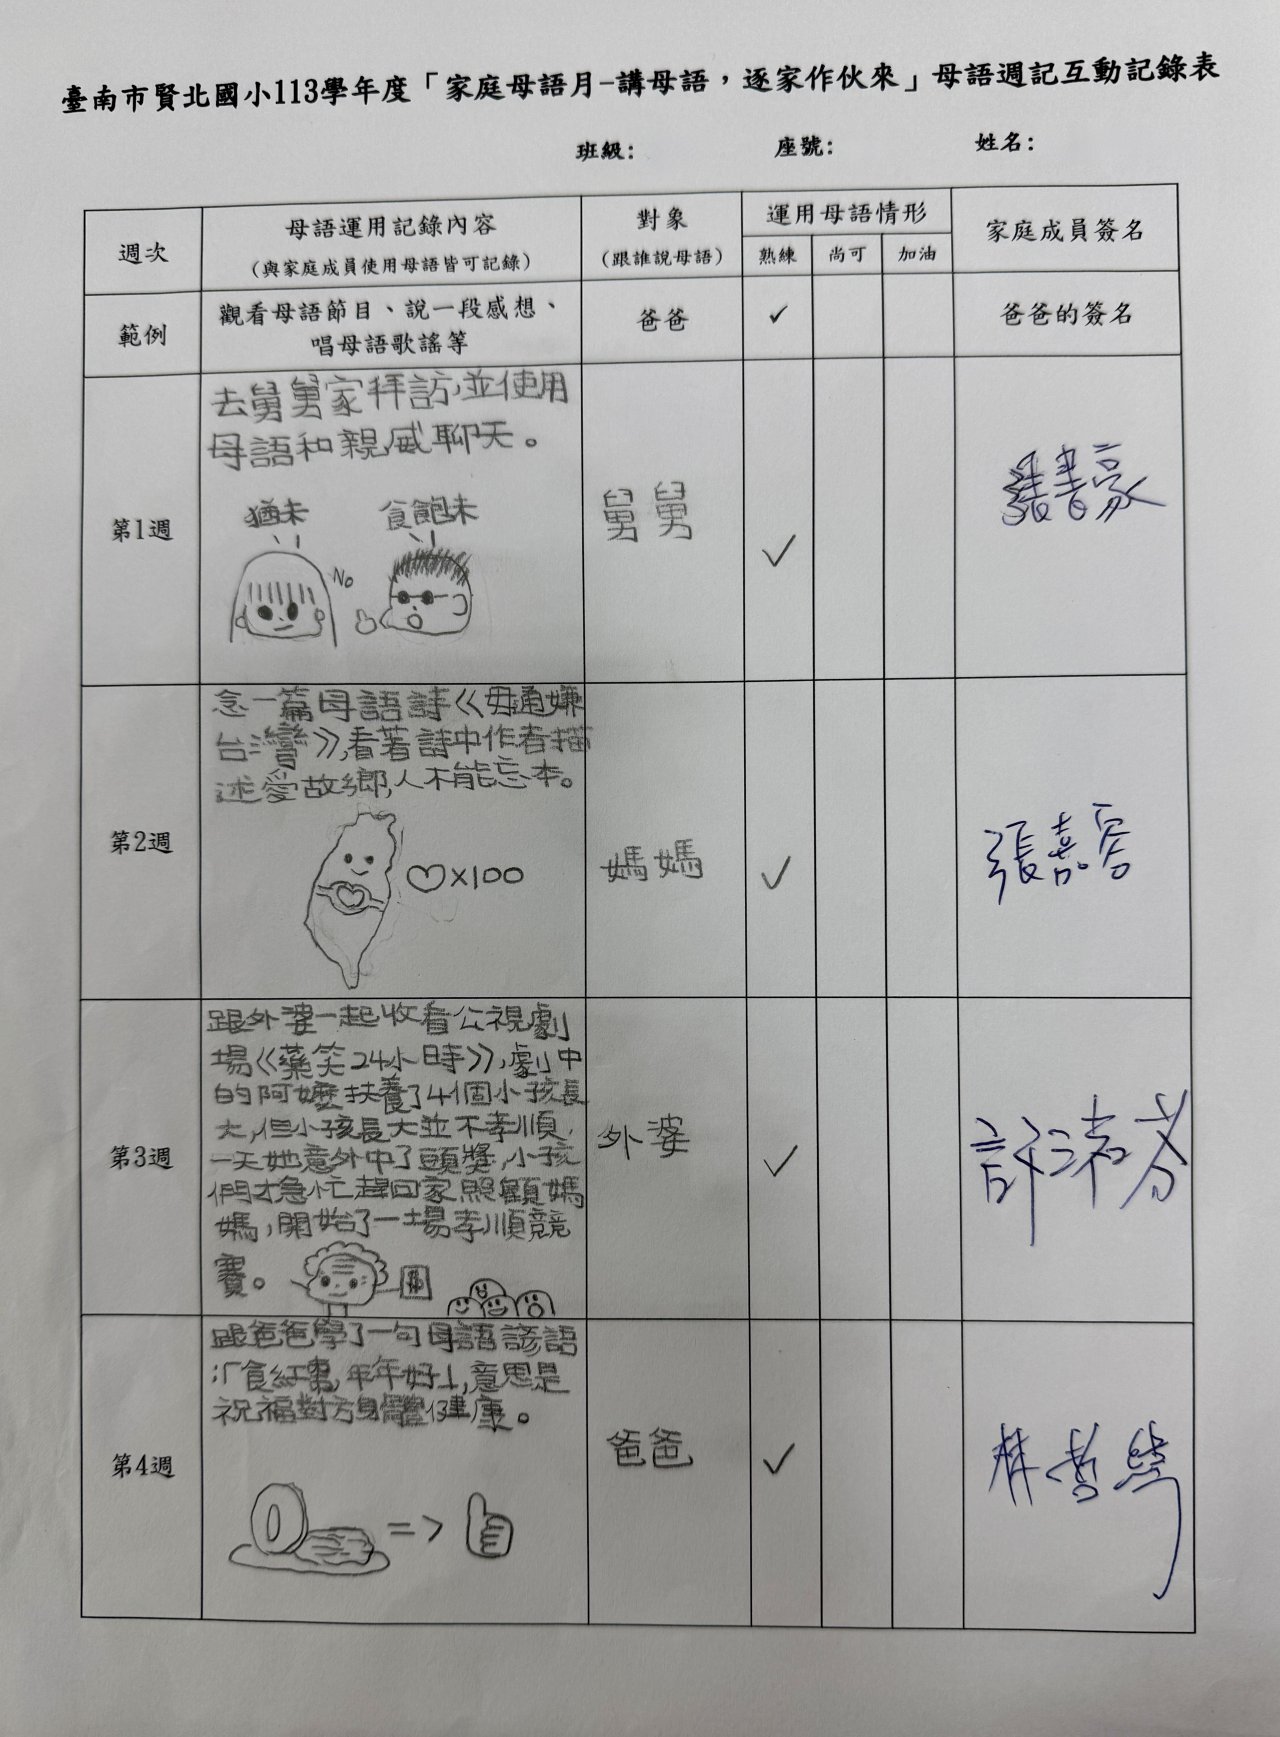 臺南市賢北國小113學年度「家庭母語月-講母語，逐家作伙來」母語週記互動記錄表
班級: 座號: 姓名:
週次 母語運用記錄內容 對象 運用母語情形 家庭成員簽名
(與家庭成員使用母語皆可記錄) (跟誰說母語) 熟練 尚可 加油
範例 觀看母語節目、說一段感想、 爸爸 ✓ 爸爸的簽名
唱母語歌謠等
第1週
去舅舅家拜訪,並使用
母語和親戚聊天。
猶未 食飽未
No
舅舅 ✓
書豪
第2週
念一篇母語詩《毋通嫌
台灣》,看著詩中作者描
述愛故鄉,人不能忘本。
♡x100
媽媽 ✓
張嘉容
第3週
跟外婆一起收看公視劇
場《藥笑24小時》,劇中
的阿嬤扶養了4個小孩長
大,但小孩長大並不孝順,
一天她意外中了頭獎,小孩
們才急忙趕回家照顧媽
媽,開始了一場孝順競
賽。
$
外婆 ✓
許 芬
第4週
跟爸爸學了一句母語諺語
食紅棗,年年好」,意思是
祝福對方身體健康。
=>
爸爸 ✓
林哲